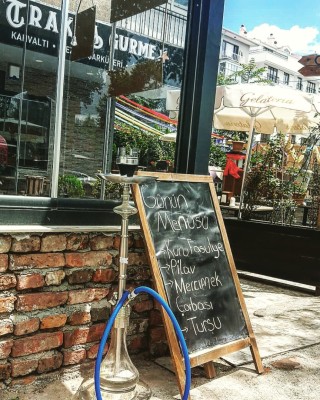 TRAK
GURME
KAHVALTI
ŞARKÜTERİ
Gelateria
Günün
Menüsü
→ Kuru Fasulye
→ Pilav
→ Mercimek
Çorbası
→ Turşu